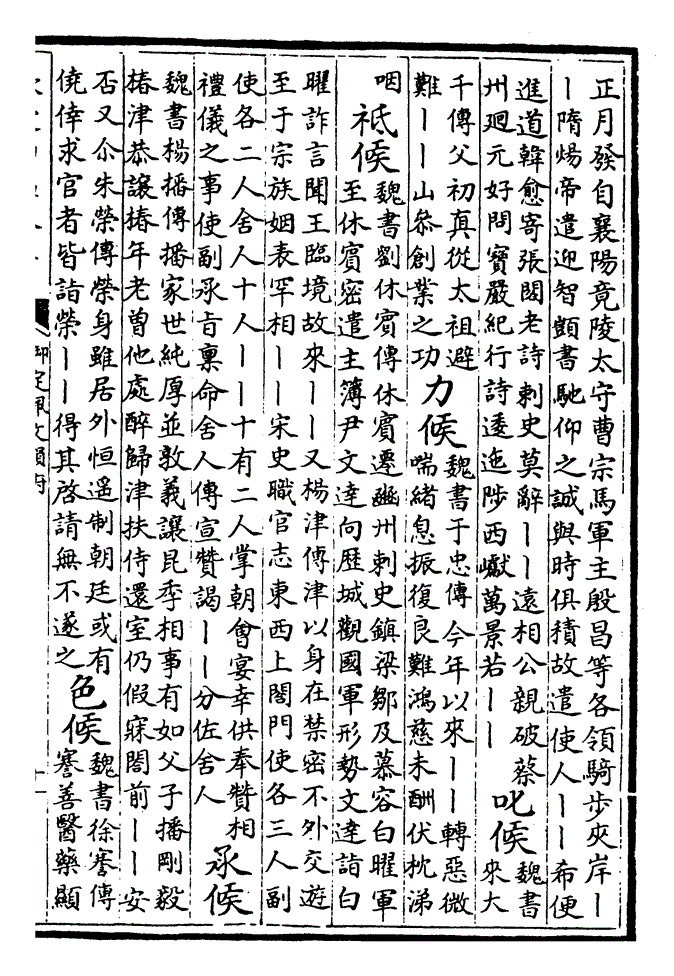 正月發自襄陽竟陵太守曹宗馬軍主殷昌等各領騎步夾岸丨
丨隋煬帝遣迎智顗書馳仰之誠與時俱積故遣使人丨丨希便
進道韓愈寄張閣老詩刺史莫辭丨丨遠相公親破蔡
州廻元好問寶嚴紀行詩逶迤陟西巘萬景若丨丨
叱候
魏書
來大
千傳父初真從太祖避
難丨丨山叅創業之功
力候
魏書于忠傳今年以來丨丨轉惡微
喘緒息振復良難鴻慈未酬伏枕涕
咽
祗候
魏書劉休賓傳休賓遷幽州刺史鎮梁鄒及慕容白曜軍
至休賓密遣主簿尹文達向歷城觀國軍形勢文達詣白
曜詐言聞王臨境故來丨丨又楊津傳津以身在禁密不外交遊
至于宗族姻表罕相丨丨宋史職官志東西上閤門使各三人副
使各二人舍人十人丨丨十有二人掌朝會宴幸供奉贊相
禮儀之事使副承旨稟命舍人傳宣贊謁丨丨分佐舍人
承候
魏書楊播傳播家世純厚並敦義讓昆季相事有如父子播剛毅
椿津恭讓椿年老曾他處醉歸津扶侍還室仍假寐閤前丨丨安
否又尒朱榮傳榮身雖居外恒遥制朝廷或有
僥倖求官者皆詣榮丨丨得其啓請無不遂之
色候
魏書徐謇傳
謇善醫藥顯
御定佩文韻府